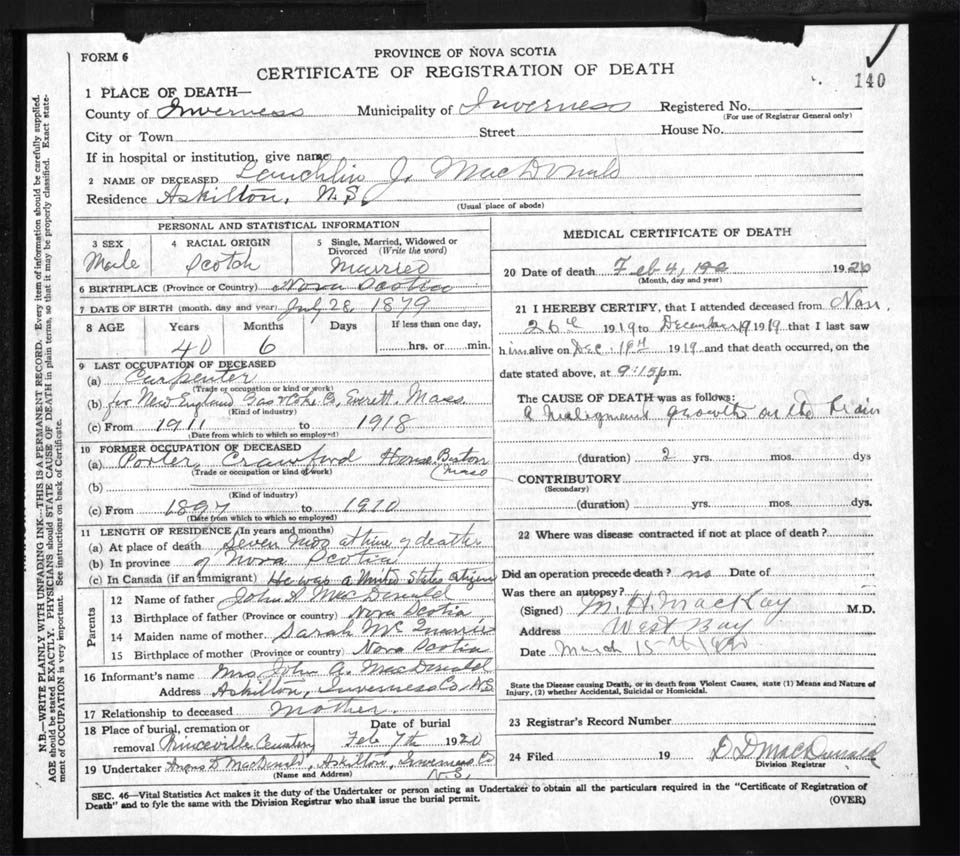 FORM 6
PROVINCE OF NOVA SCOTIA
CERTIFICATE OF REGISTRATION OF DEATH
140
1 PLACE OF DEATH—
County of Inverness Municipality of Inverness Registered No.
(For use of Registrar General only)
City or Town Street House No.
If in hospital or institution, give name
2 NAME OF DECEASED Lauchlin J. MacDonald
Residence Askilton, N.S.
(Usual place of abode)
PERSONAL AND STATISTICAL INFORMATION
3 SEX 4 RACIAL ORIGIN 5 Single, Married, Widowed or
Divorced (Write the word)
Male Scotch Married
6 BIRTHPLACE (Province or Country) Nova Scotia
7 DATE OF BIRTH (month, day and year) July 28, 1879
8 AGE Years Months Days If less than one day,
40 6 hrs. or min.
9 LAST OCCUPATION OF DECEASED
(a) Carpenter
(Trade or occupation or kind or work)
(b) for New England Gas & Coke Co, Everett, Mass.
(Kind of industry)
(c) From 1911 to 1918
(Date from which to which so employed)
10 FORMER OCCUPATION OF DECEASED
(a) Porter Crawford House Boston
Mass
(Trade or occupation or kind of work)
(b)
(Kind of industry)
(c) From 1897 to 1910
(Date from which to which so employed)
11 LENGTH OF RESIDENCE (In years and months)
(a) At place of death Seven mos at time of death
(b) In province of Nova Scotia
(c) In Canada (if an immigrant) He was a United States citizen
Parents
12 Name of father John A MacDonald
13 Birthplace of father (Province or country) Nova Scotia
14 Maiden name of mother Sarah McQuarrie
15 Birthplace of mother (Province or country) Nova Scotia
16 Informant's name Mrs John A. MacDonald
Address Askilton, Inverness Co, N.S.
17 Relationship to deceased Mother.
18 Place of burial, cremation or Date of burial
removal Princeville Cemetery Feb 7th 1920
19 Undertaker Angus D MacDonald, Askilton, Inverness Co
N.S.
(Name and Address)
MEDICAL CERTIFICATE OF DEATH
20 Date of death Feb 4, 1920
(Month, day and year)
21 I HEREBY CERTIFY, that I attended deceased from Nov.
26th 1919 to December 19 1919 that I last saw
him alive on Dec. 19th 1919 and that death occurred, on the
date stated above, at 9:15 p m.
The CAUSE OF DEATH was as follows:
A malignant growth on the brain
(duration) 2 yrs. mos. dys
CONTRIBUTORY
(Secondary)
(duration) yrs. mos. dys.
22 Where was disease contracted if not at place of death?
Did an operation precede death? no Date of
Was there an autopsy?
(Signed) M. H. MacKay M.D.
Address West Bay
Date March 15th 1920
State the Disease causing Death, or in death from Violent Causes, state (1) Means and Nature of
Injury, (2) whether Accidental, Suicidal or Homicidal.
23 Registrar's Record Number
24 Filed 19 D D MacDonald
Division Registrar
SEC. 46—Vital Statistics Act makes it the duty of the Undertaker or person acting as Undertaker to obtain all the particulars required in the "Certificate of Registration of
Death" and to fyle the same with the Division Registrar who shall issue the burial permit.
(OVER)
N.B.—WRITE PLAINLY WITH UNFADING INK—THIS IS A PERMANENT RECORD. Every item of information should be carefully supplied.
AGE should be stated EXACTLY. PHYSICIANS should STATE CAUSE OF DEATH in plain terms, so that it may be properly classified. Exact state-
ment of OCCUPATION is very important. See instructions on back of Certificate.